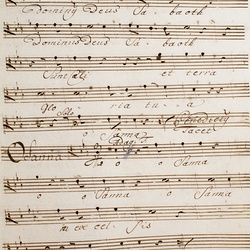 Dominus Deus Sa- baoth
Dominus Deus Sa- baoth
Sunt cæli et terra
glo- ria tu- a
Solo Benedictus
o Sanna tacet
Osanna Adagio
o o Sanna
o o Sanna o Sanna
in ex cel- sis